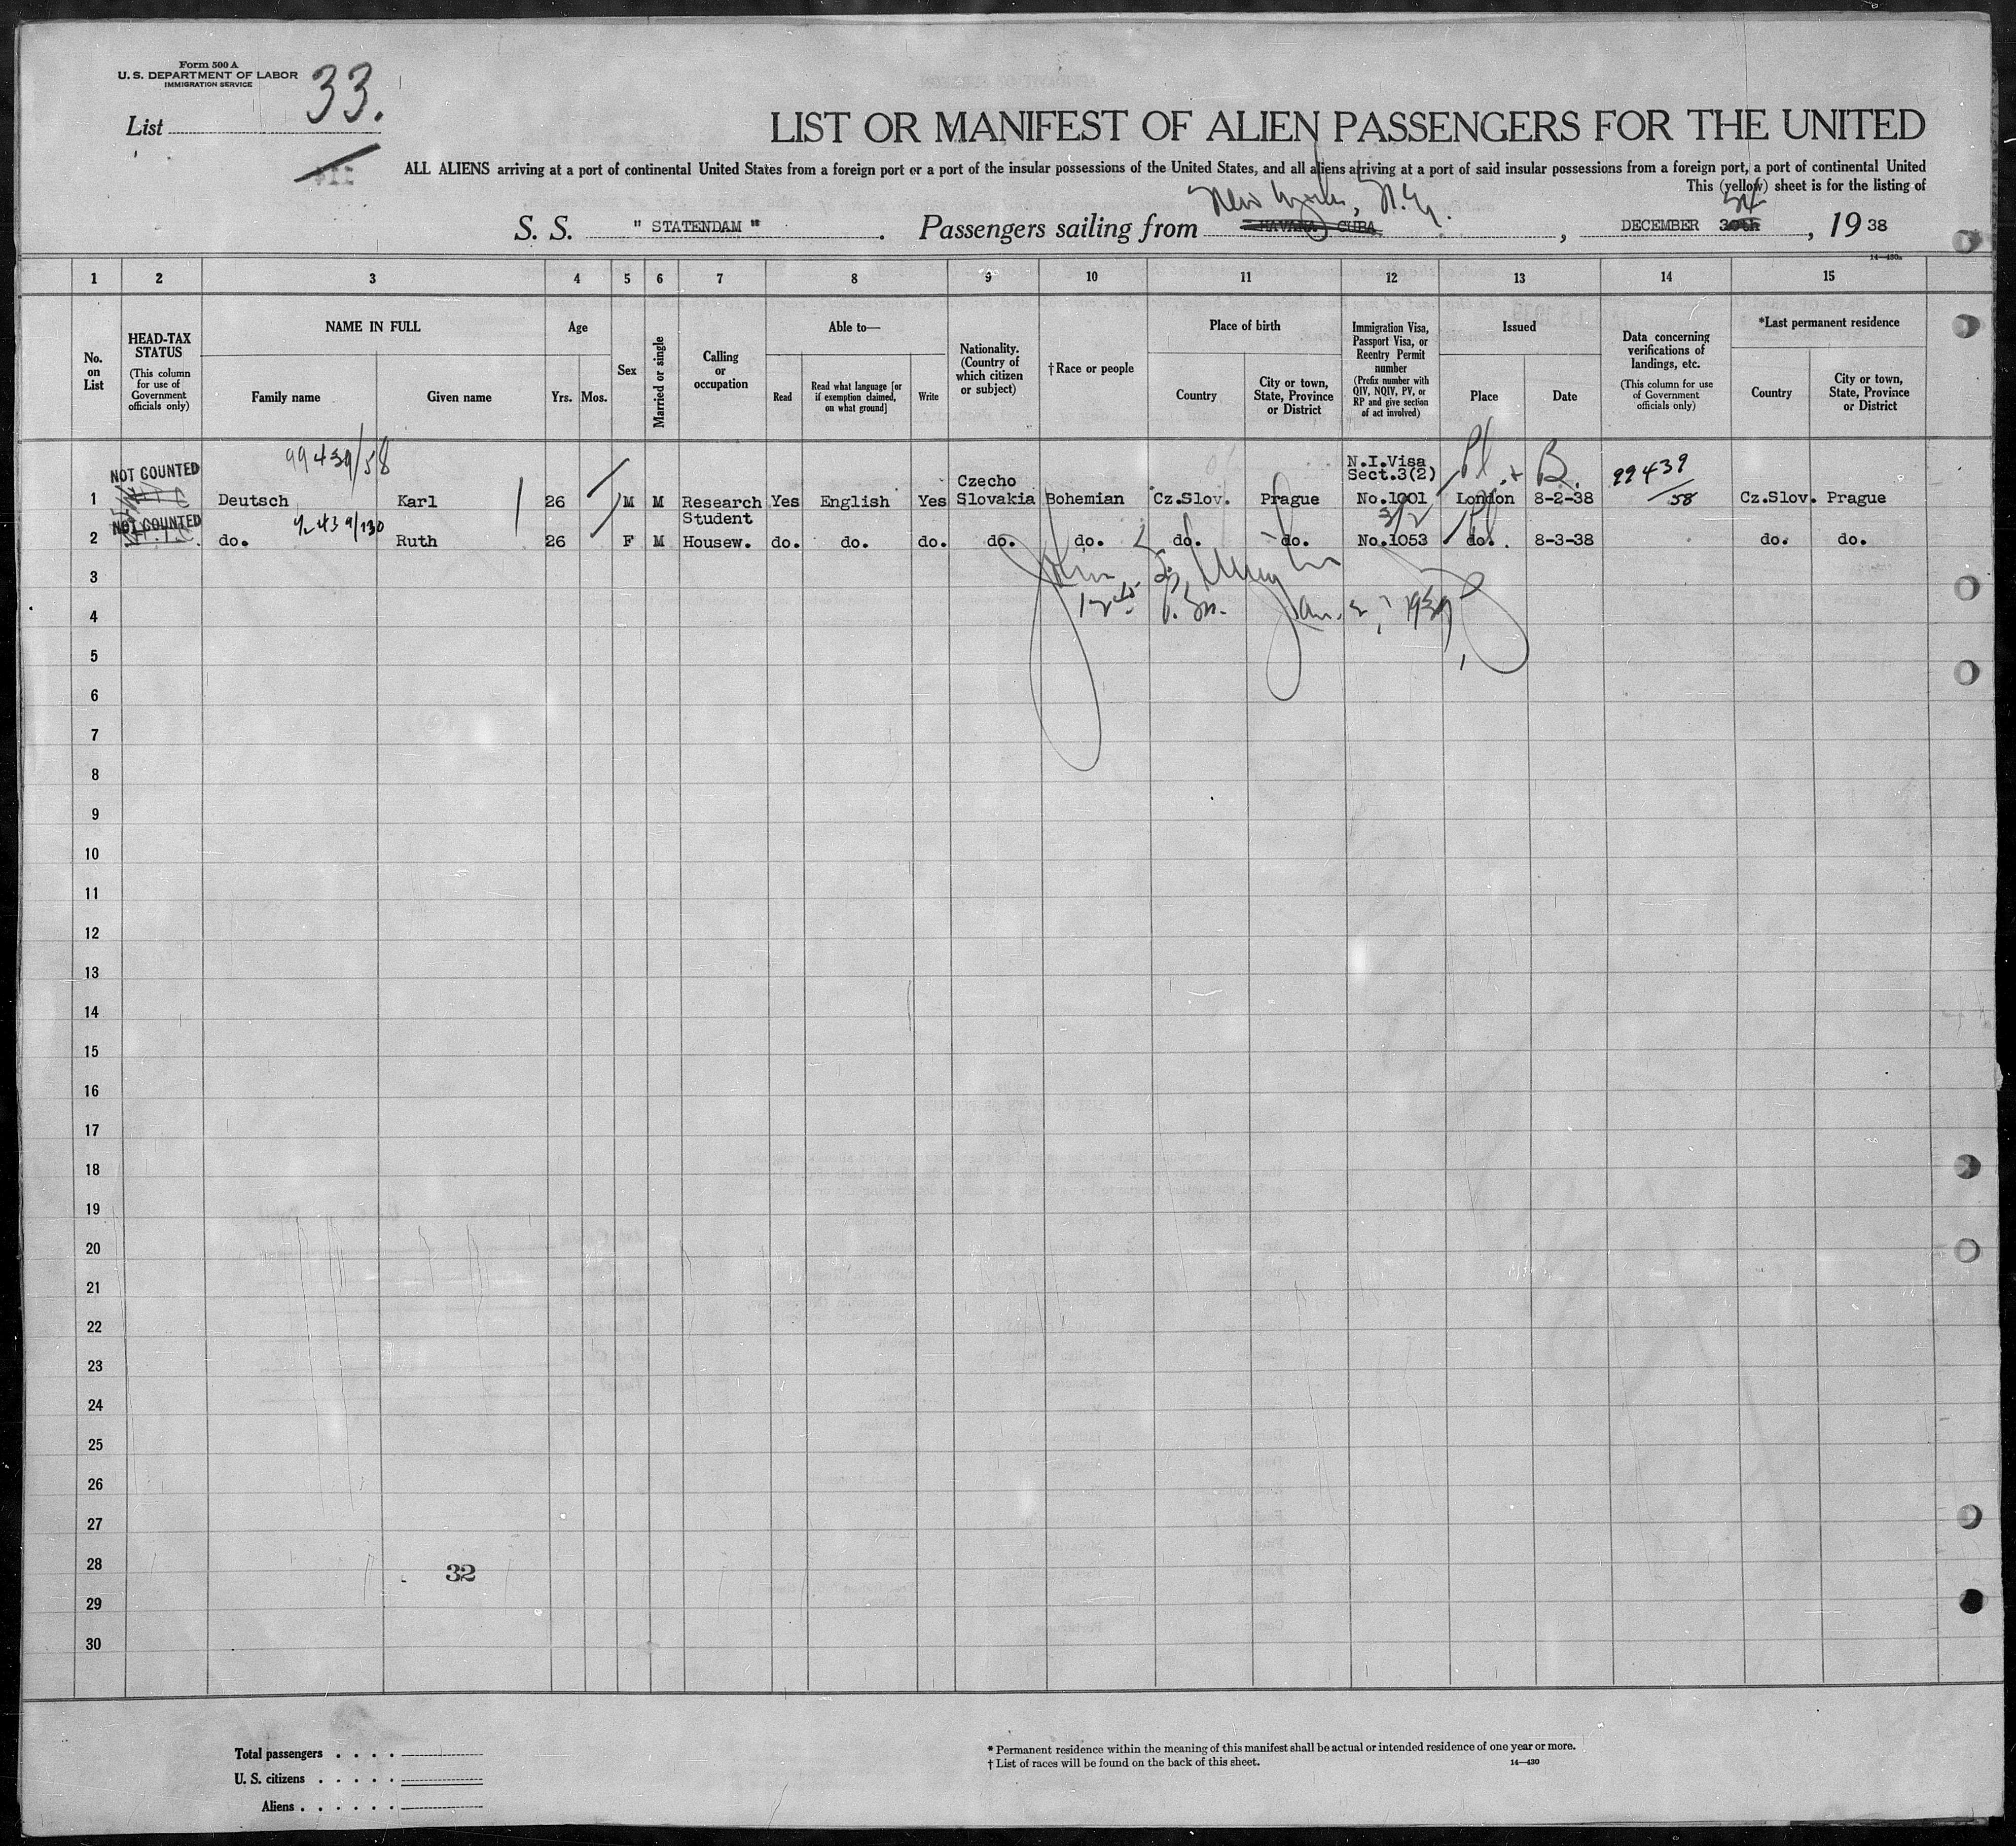 Form 500 A
U. S. DEPARTMENT OF LABOR
IMMIGRATION SERVICE
List 33.
LIST OR MANIFEST OF ALIEN PASSENGERS FOR THE UNITED
ALL ALIENS arriving at a port of continental United States from a foreign port or a port of the insular possessions of the United States, and all aliens arriving at a port of said insular possessions from a foreign port, a port of continental United
This (yellow) sheet is for the listing of
New York, N.Y.
S. S. " STATENDAM " . Passengers sailing from HAVANA, CUBA , DECEMBER 30th , 19 38
14—430a
1 2 3 4 5 6 7 8 9 10 11 12 13 14 15
No. on List
HEAD-TAX STATUS
(This column for use of Government officials only)
NAME IN FULL
Family name Given name
Age
Yrs. Mos.
Sex
Married or single
Calling or occupation
Able to—
Read
Read what language [or if exemption claimed, on what ground]
Write
Nationality. (Country of which citizen or subject)
† Race or people
Place of birth
Country
City or town, State, Province or District
Immigration Visa, Passport Visa, or Reentry Permit number
(Prefix number with QIV, NQIV, PV, or RP and give section of act involved)
Issued
Place Date
Data concerning verifications of landings, etc.
(This column for use of Government officials only)
*Last permanent residence
Country
City or town, State, Province or District
99439/58
NOT COUNTED
N.I.Visa
Sect.3(2)
Pl. + B.
99439/58
1 Deutsch Karl 26 M M Research Student Yes English Yes Czecho Slovakia Bohemian Cz.Slov. Prague No.1001 London 8-2-38 Cz.Slov. Prague
NOT COUNTED
3/2
2 do. Ruth 26 F M Housew. do. do. do. do. do. do. do. No.1053 do. 8-3-38 do. do.
3
John
4
Jan. 2, 1939
5
6
7
8
9
10
11
12
13
14
15
16
17
18
19
20
21
22
23
24
25
26
27
28
32
29
30
Total passengers . . . .
U. S. citizens . . . . .
Aliens . . . . . .
* Permanent residence within the meaning of this manifest shall be actual or intended residence of one year or more.
† List of races will be found on the back of this sheet.
14—430